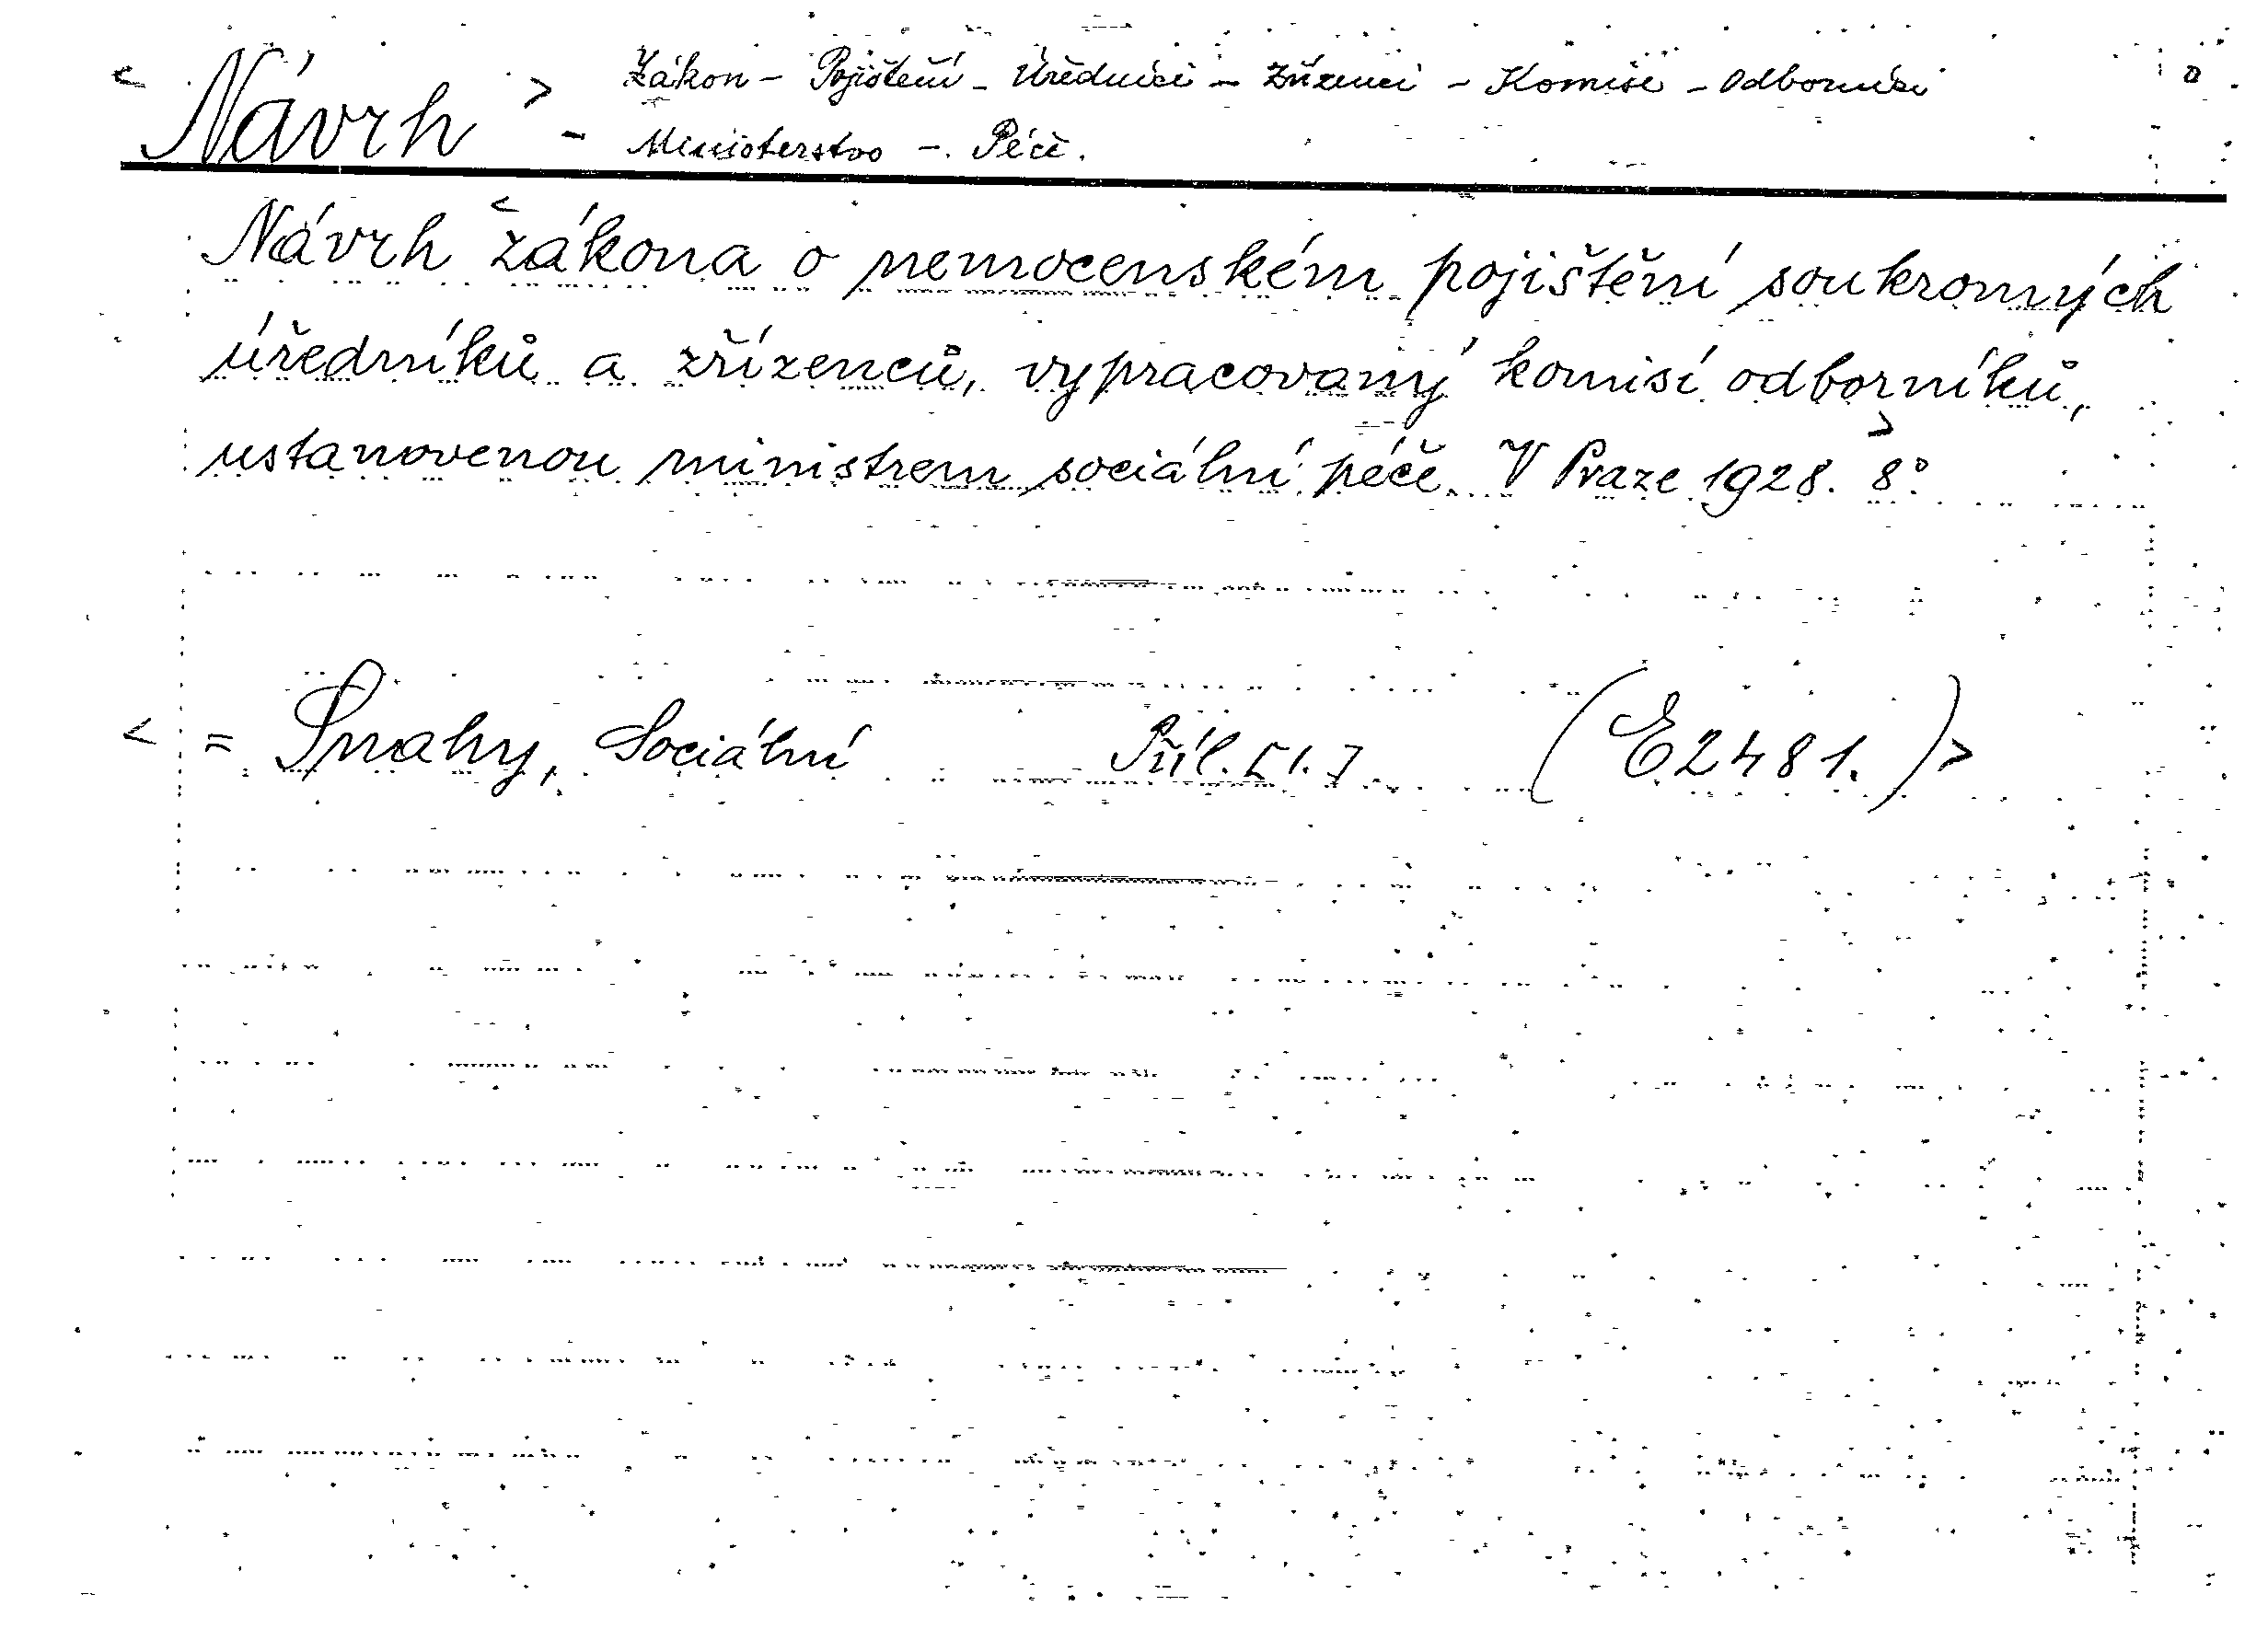 < Návrh > Zákon - Pojištění - Úředníci - Zřízenci - Komise - Odborníci
- Ministerstvo - Péče.
Návrh <zákona o nemocenském pojištění soukromých
úředníků a zřízenců, vypracovaný komisí odborníků,
ustanovenou ministrem sociální péče. V Praze 1928.> 8°.
< = Snahy, Sociální Příl. [1.] (E2481.) >